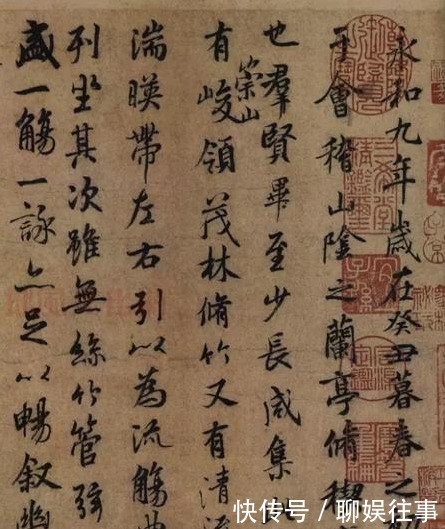 永和九年歲在癸丑暮春之
于會稽山陰之蘭亭脩稧
也羣賢畢至少長咸集
有崇山峻領茂林脩竹又有清流
湍暎帶左右引以為流觴曲
列坐其次雖無絲竹管弦
盛一觴一詠亦足以暢叙幽
快传号 / 聊娱往事